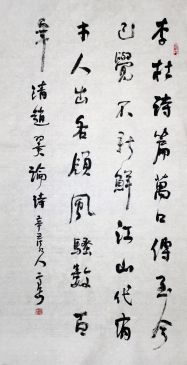 李杜詩篇萬口傳至今
已覺不新鮮江山代有
才人出各領風騷數百
年 清趙翼論詩